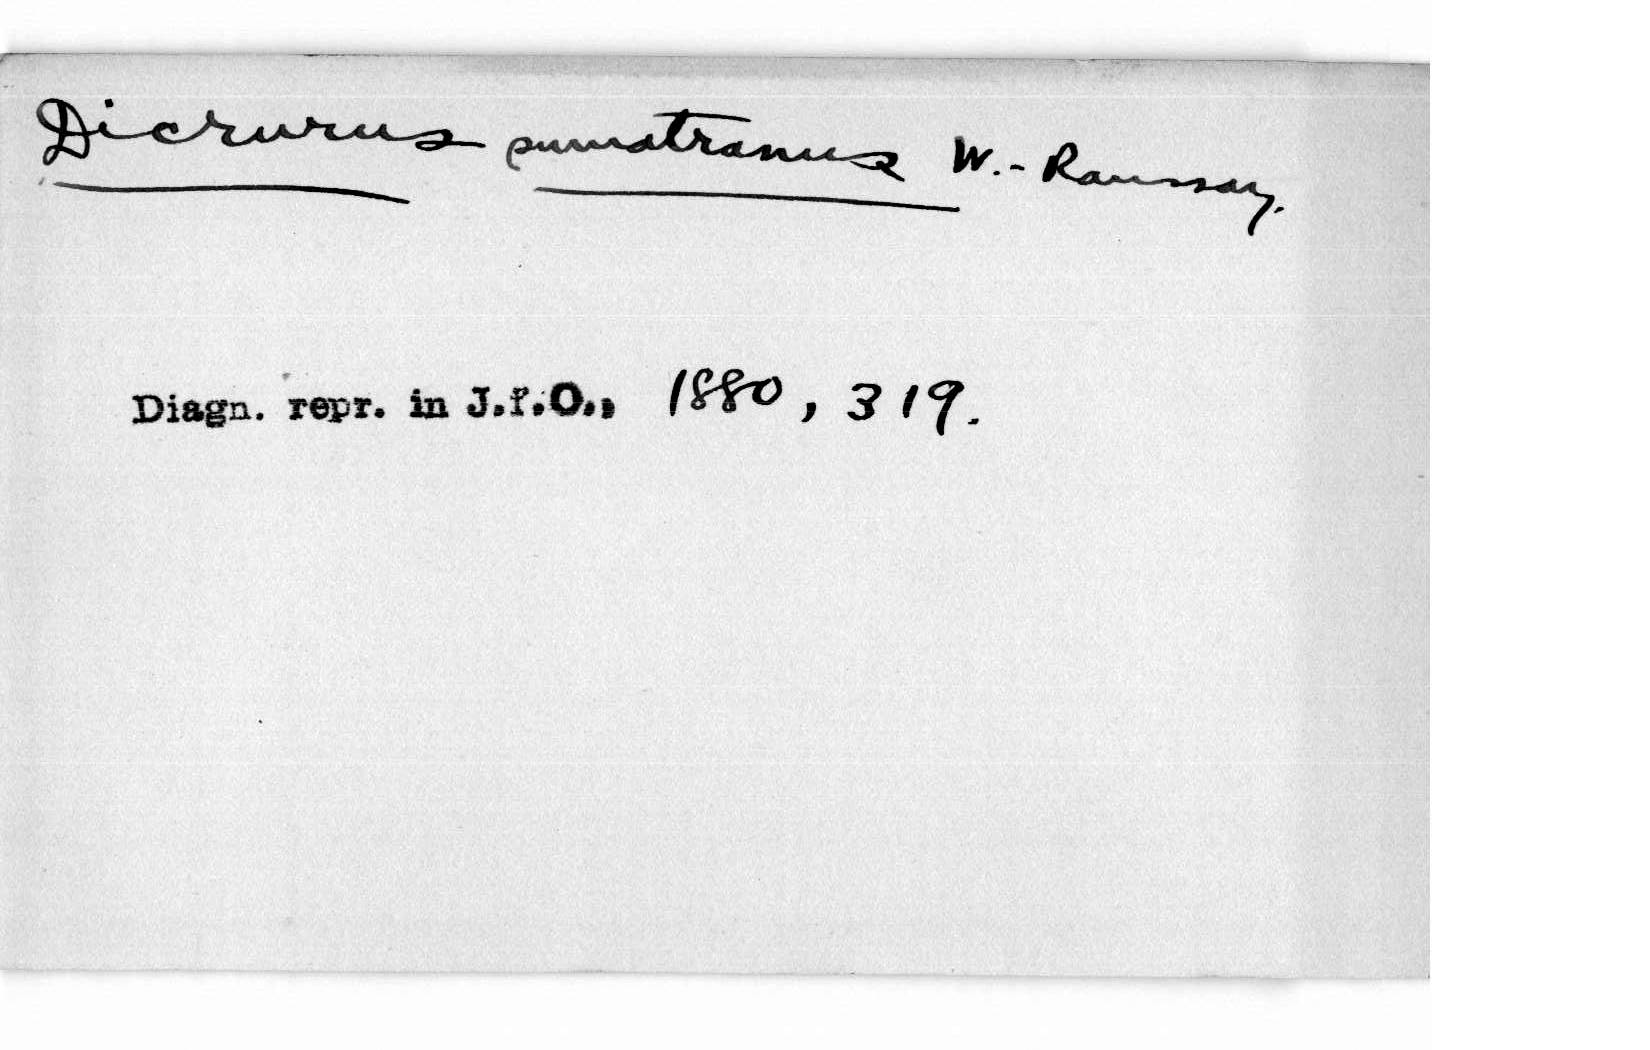 Dicrurus sumatranus W.-Ramsay.
Diagn. repr. in J.f.O., 1880, 319.